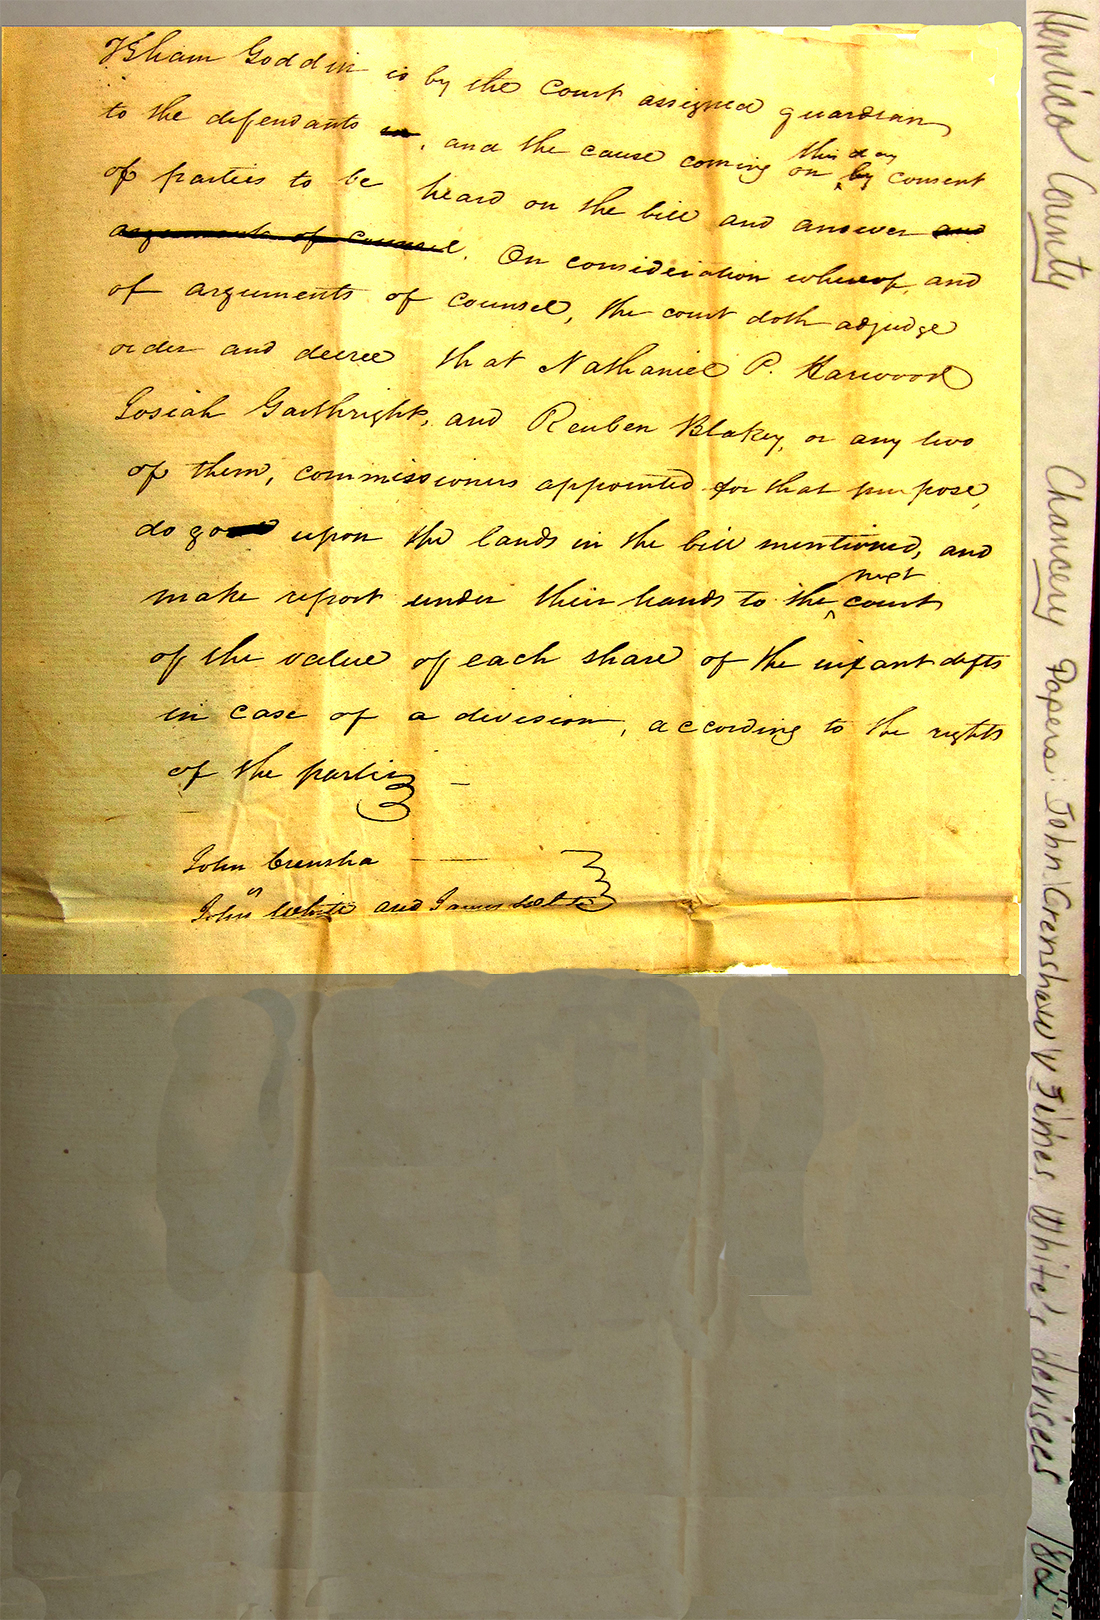 Isham Goddin is by the Court assigned guardian
to the defendants in, and the cause coming on this day by consent
of parties to be heard on the bill and answer and
arguments of Counsel. On consideration whereof, and
of arguments of Counsel, the court doth adjudge
order and decree that Nathaniel P. Harwood
Josiah Gathright, and Reuben Blakey, or any two
of them, commissioners appointed for that purpose,
do go upon the lands in the bill mentioned, and
make report under their hands to the next court
of the value of each share of the infant defts
in case of a division, according to the rights
of the parties —
John Crensha
vs
John White and James White
Henrico County Chancery Papers: John Crenshaw v James White's devisees 1812